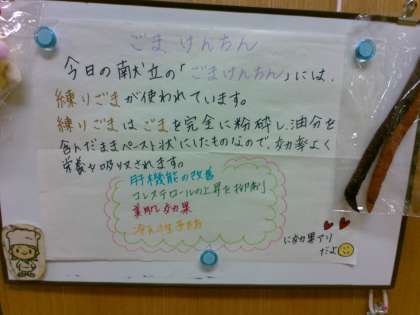 ごまけんちん
今日の献立の「ごまけんちん」には、
練りごまが使われています。
練りごまはごまを完全に粉砕し、油分を
含んだままペースト状にしたものなので、効率よく
栄養も吸収されます。
肝機能の改善
コレステロールの上昇を抑制
美肌効果
冷え性予防
に効果アリ
だよ